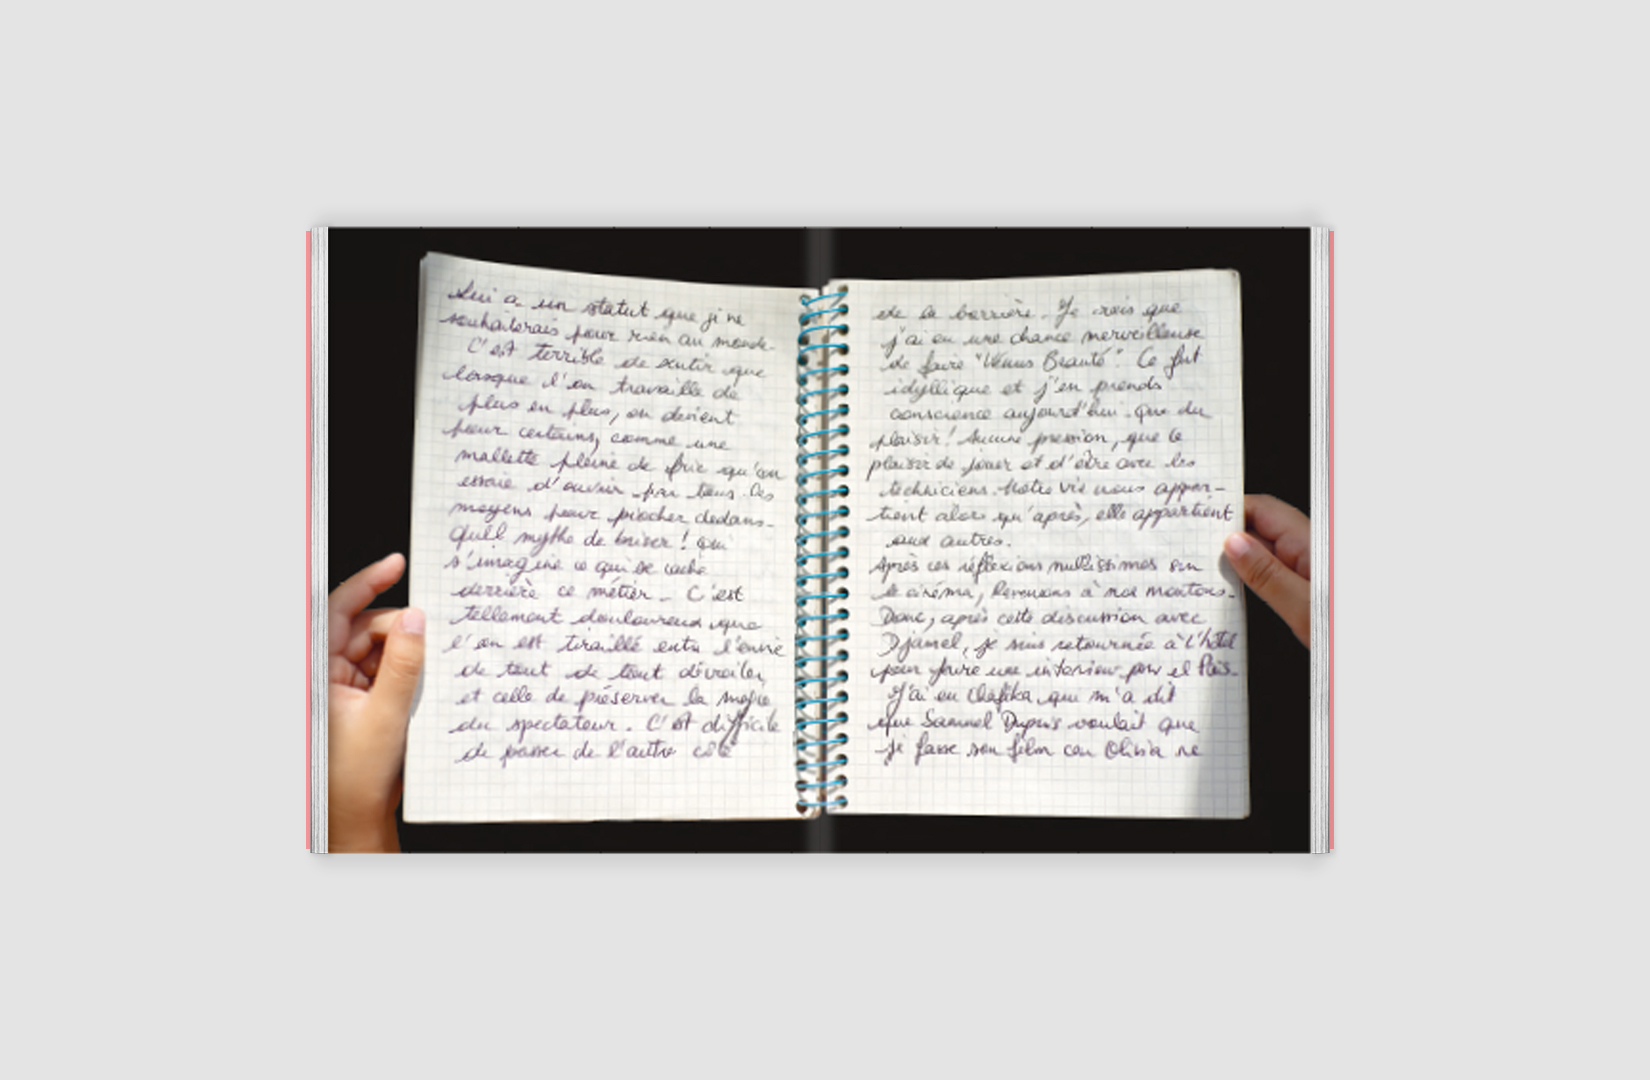 Lui a un statut que je ne
souhaiterais pour rien au monde.
C'est terrible de sentir que
lorsque l'on travaille de
plus en plus, on devient
pour certains, comme une
mallette pleine de fric qu'on
essaie d'ouvrir par tous les
moyens pour piocher dedans.
Quel mythe de briser ! qui
s'imagine ce qui se cache
derrière ce métier. C'est
tellement douloureux que
l'on est tiraillé entre l'envie
de tout de tout dévoiler,
et celle de préserver la magie
du spectateur. C'est difficile
de passer de l'autre côté
de la barrière. Je sais que
j'ai eu une chance merveilleuse
de faire "Vénus Beauté". Ce fut
idyllique et j'en prends
conscience aujourd'hui. que du
plaisir ! Aucune pression, que le
plaisir de jouer et d'être avec les
techniciens. Notre vie nous appar-
tient alors qu'après, elle appartient
aux autres.
Après ces réflexions nullissimes sur
le cinéma, Revenons à nos moutons.
Donc, après cette discussion avec
Djamel, je suis retournée à l'hôtel
pour faire une interview pour el País.
J'ai eu Chafika qui m'a dit
que Samuel Dupuis voulait que
je fasse son film car Olivia ne